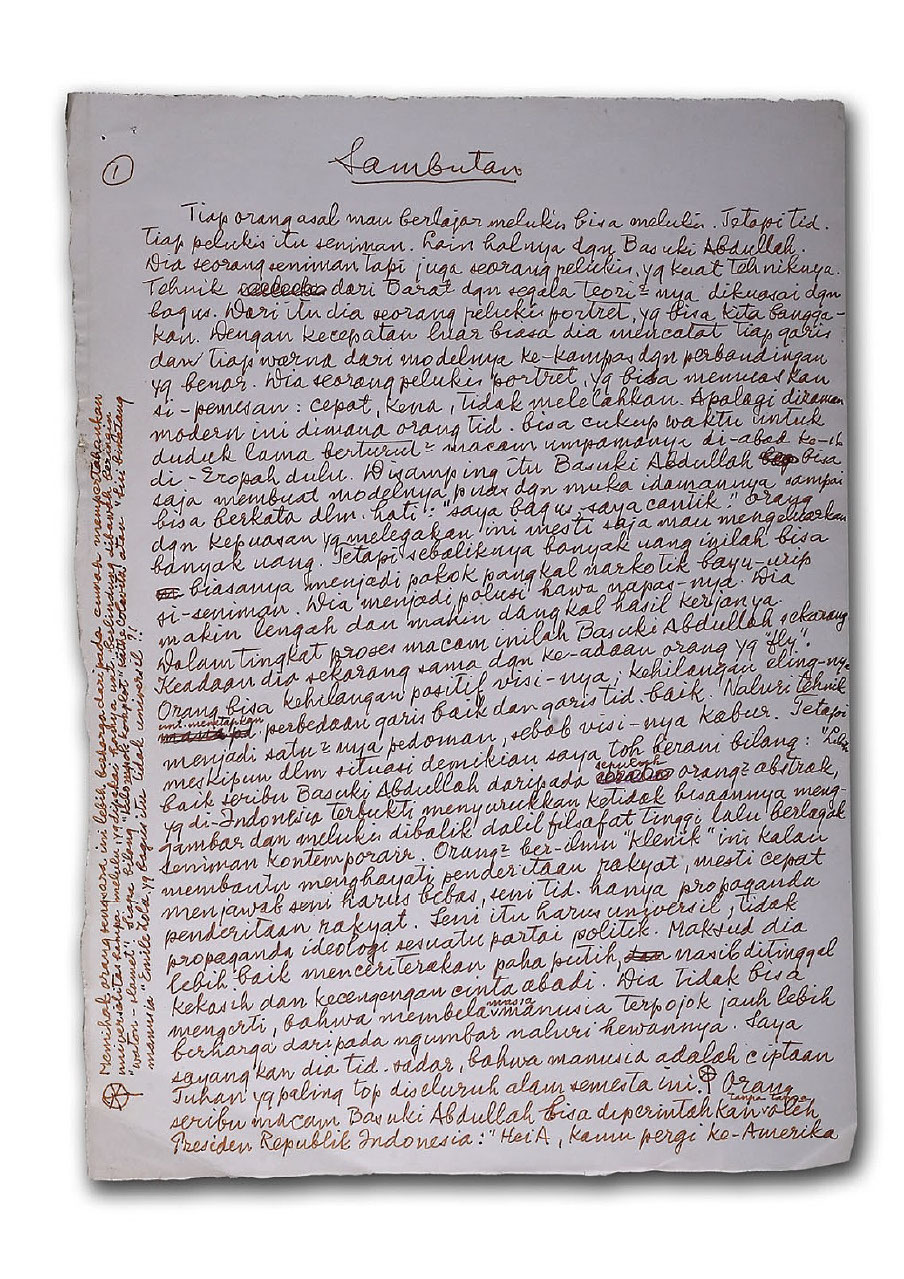 1
Sambutan
Tiap orang asal mau berlajar melukis bisa melukis. Tetapi tid.
tiap pelukis itu seniman. Lain halnya dgn Basuki Abdullah.
Dia seorang seniman tapi juga seorang pelukis, yg kuat tehniknya.
Tehnik dari Barat dgn segala teori²-nya dikuasai dgn
bagus. Dari itu dia seorang pelukis portret, yg bisa kita bangga-
kan. Dengan kecepatan luar biasa dia mencatat tiap garis
dan tiap warna dari modelnya ke-kampas dgn perbandingan
yg benar. Dia seorang pelukis portret, yg bisa memuaskan
si-pemesan: cepat, kena, tidak melelahkan. Apalagi dizaman
modern ini dimana orang tid. bisa cukup waktu untuk
duduk lama berturut² macam umpamanya di-abad ke-16
di-Eropah dulu. Disamping itu Basuki Abdullah bisa
saja membuat modelnya puas dgn muka idamannya sampai
bisa berkata dlm. hati: "saya bagus, saya cantik." Orang
dgn kepuasan yg melegakan ini mesti saja mau mengeluarkan
banyak uang. Tetapi sebaliknya banyak uang inilah bisa
biasanya menjadi pokok pangkal narkotik bayu-urip
si-seniman. Dia menjadi polusi hawa napas-nya. Dia
makin lengah dan makin dangkal hasil kerjanya.
Dalam tingkat proses macam inilah Basuki Abdullah sekarang
Keadaan dia sekarang sama dgn ke-adaan orang yg "fly".
Orang bisa kehilangan positif visi-nya, kehilangan eling-nya
unt. menetapkan
perbedaan garis baik dan garis tid. baik. Naluri tehnik
menjadi satu²nya pedoman, sebab visi-nya kabur. Tetapi
meskipun dlm situasi demikian saya toh berani bilang: "Lebih
baik seribu Basuki Abdullah daripada sepuluh orang² abstrak,
yg di-Indonesia terbukti menyurukkan ketidak bisaannya meng-
gambar dan melukis dibalik dalil filsafat tinggi lalu berlagak
seniman kontemporair. Orang² ber-ilmu "klenik" ini kalau
membantu menghayati penderitaan rakyat, mesti cepat
menjawab seni harus bebas, seni tid. hanya propaganda
penderitaan rakyat. Seni itu harus universil, tidak
propaganda ideologi sesuatu partai politik. Maksud dia
lebih baik menceriterakan paha putih, nasib ditinggal
kekasih dan kecengengan cinta abadi. Dia tidak bisa
mengerti, bahwa membela manusia terpojok jauh lebih
berharga daripada ngumbar naluri hewannya. Saya
sayangkan dia tid. sadar, bahwa manusia adalah ciptaan
Tuhan yg paling top diseluruh alam semesta ini. Orang
tanpa
seribu macam Basuki Abdullah bisa diperintahkan oleh
Presiden Republik Indonesia: "Hei A, kamu pergi ke-Amerika
Memihak orang sengsara ini lebih berharga daripada cumak mempertahankan
universalitas tanpa melulu, yg dipakai
"waton-slamet". Siapa bilang "Käthe Kollwitz" atau
manusia "Emile Zola" yg bagus itu tidak universil??